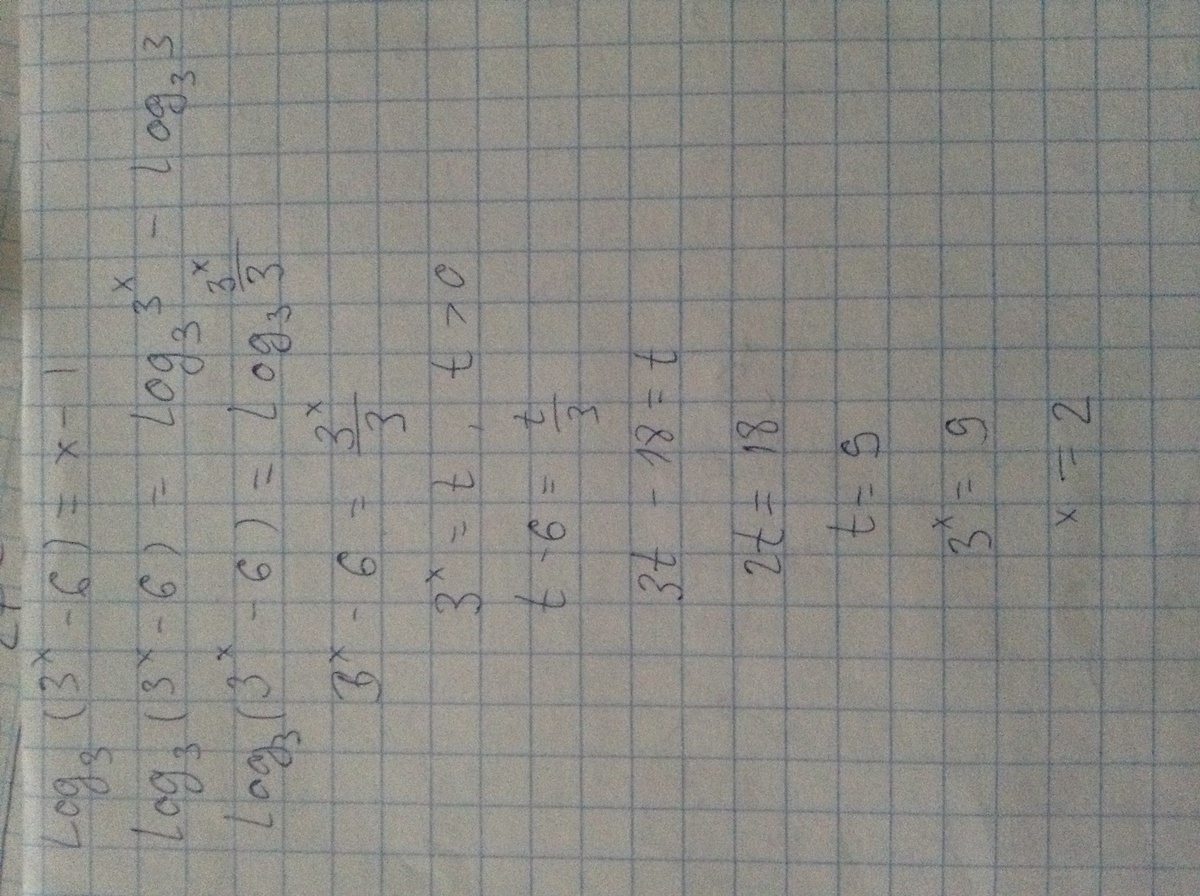 log₃(3ˣ - 6) = x - 1
log₃(3ˣ - 6) = log₃3ˣ - log₃3
log₃(3ˣ - 6) = log₃ 3ˣ/3
3ˣ - 6 = 3ˣ/3
3ˣ = t, t > 0
t - 6 = t/3
3t - 18 = t
2t = 18
t = 9
3ˣ = 9
x = 2